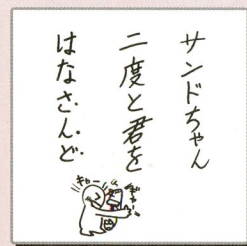 サンドちゃん
二度と君を
はなさんど
ギャー
ギャー